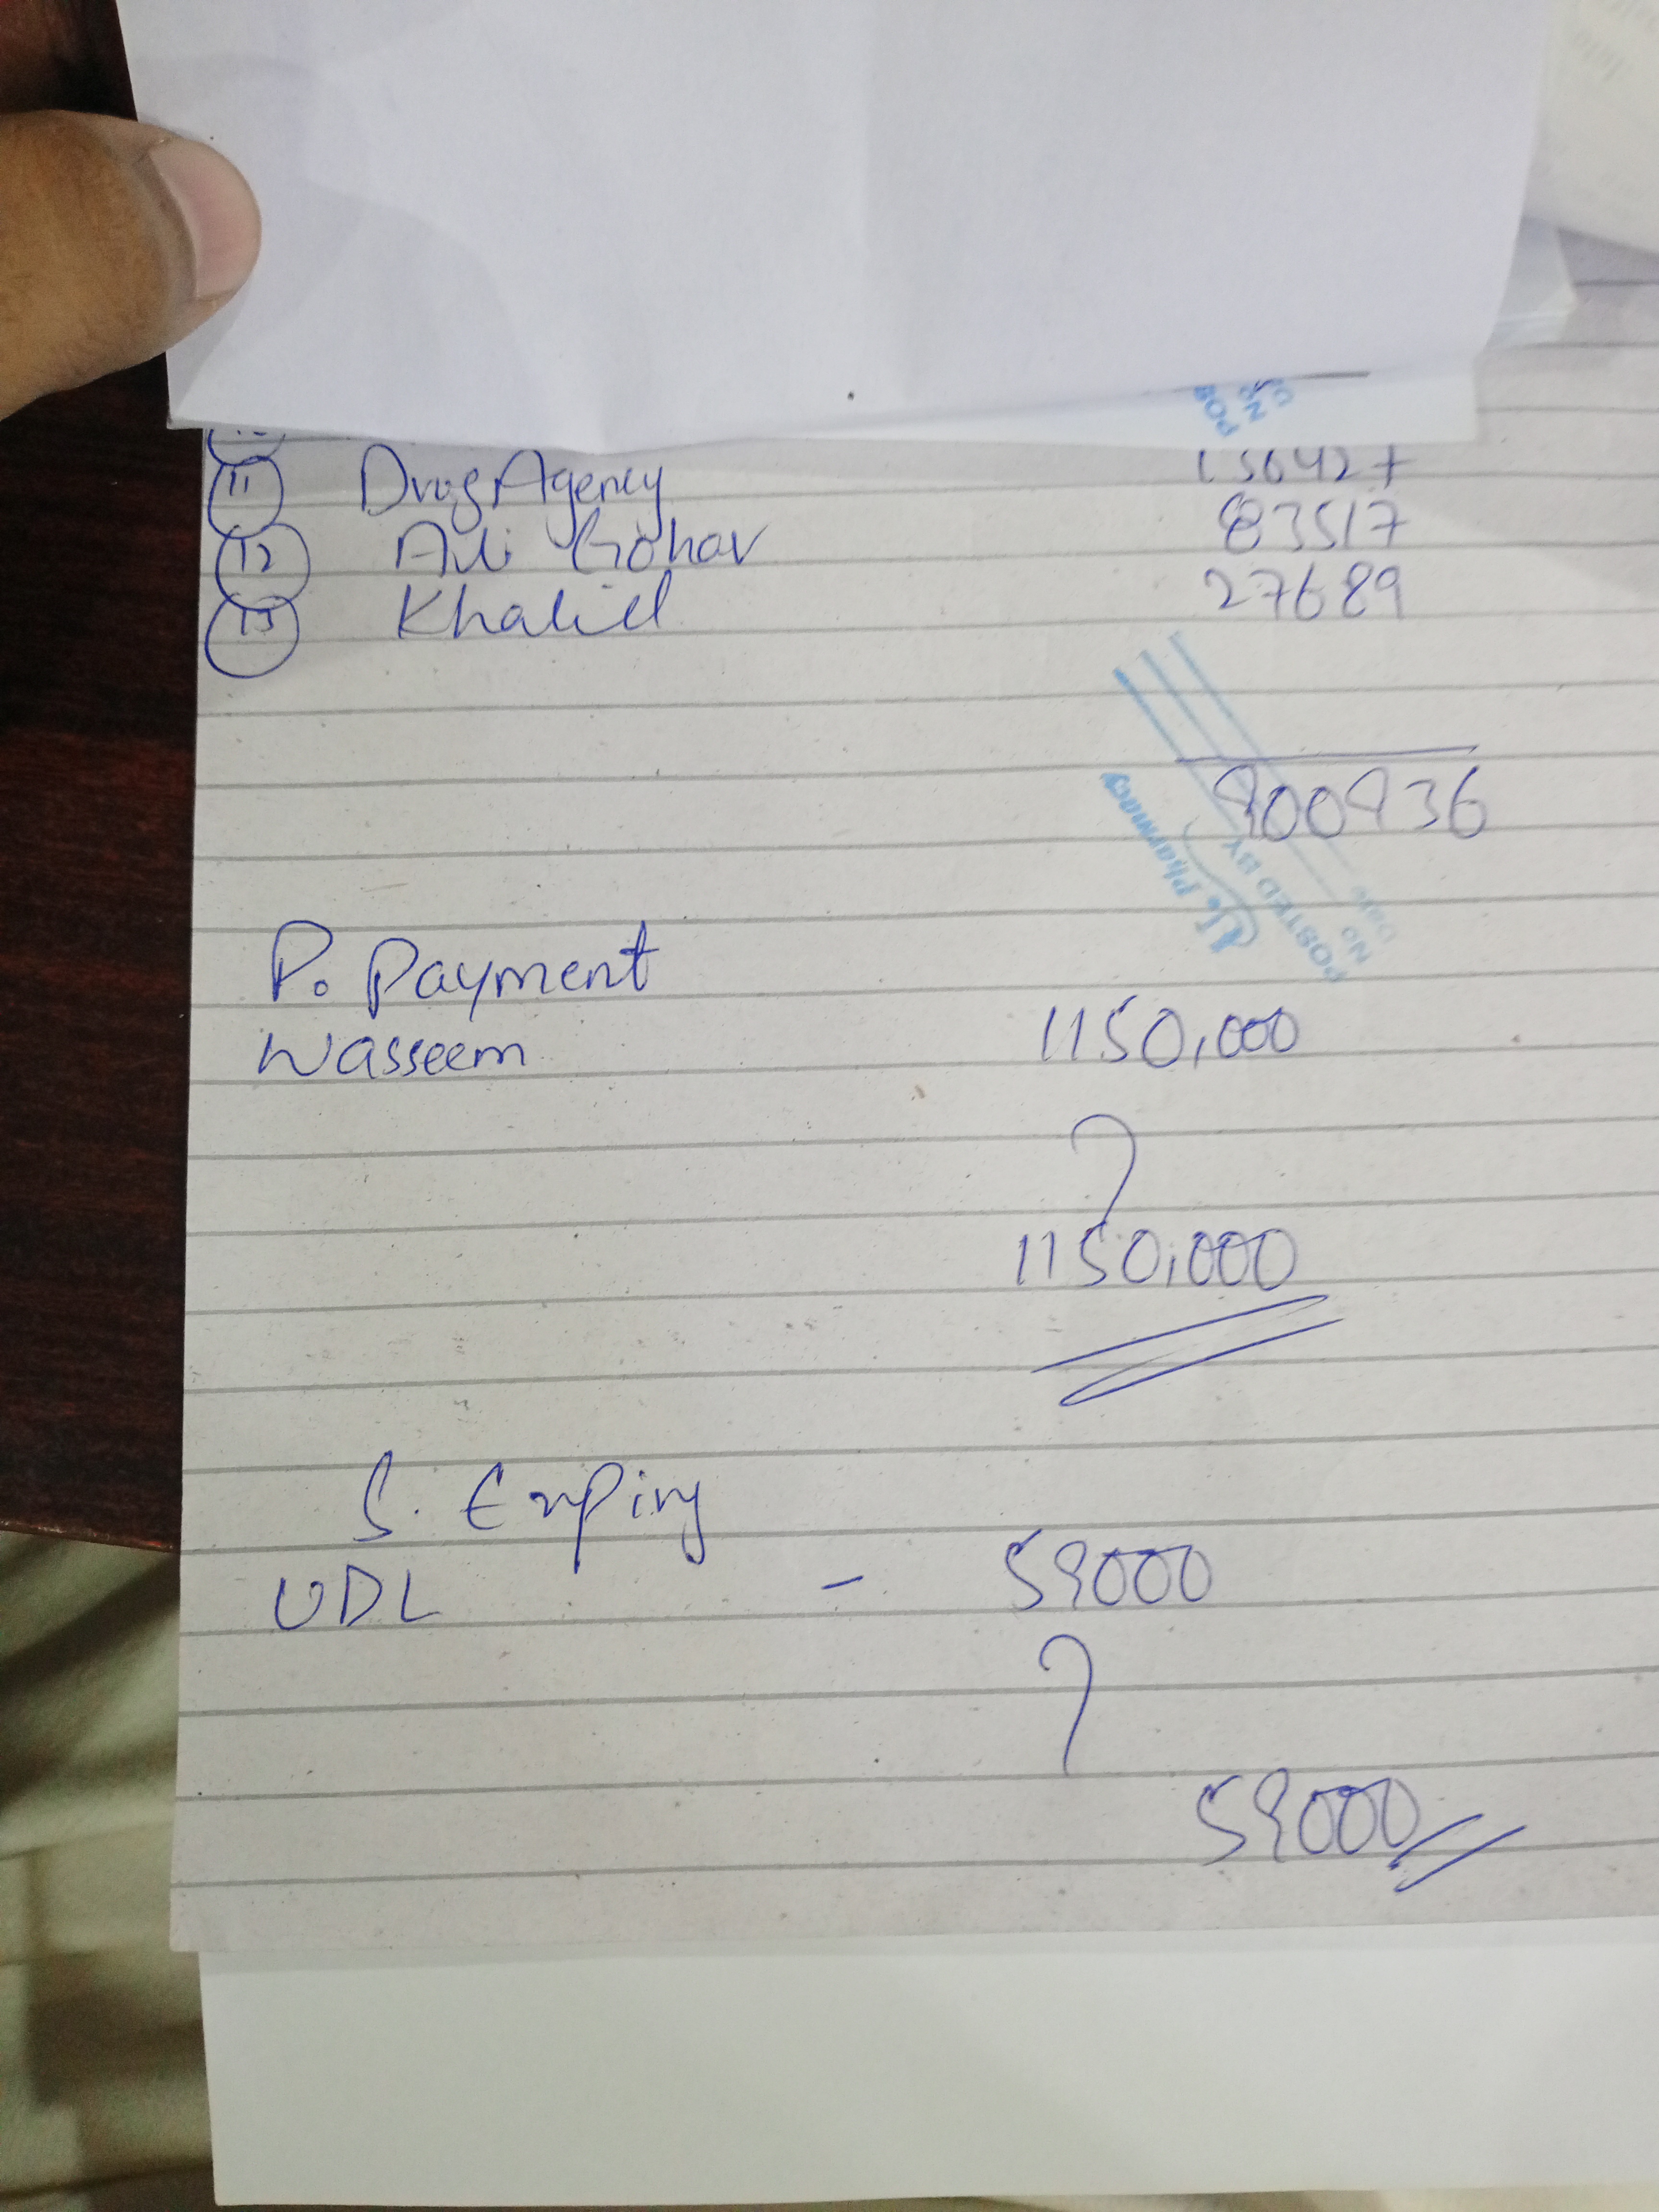 11 Drug Agency 156427
12 Ali Gohar 83517
13 Khalid 27689
900936
Pharmacy
POSTED BY
No
Date
P. Payment
Wasseem 1150,000
1150,000
S. Expiry
UDL - 59000
59000